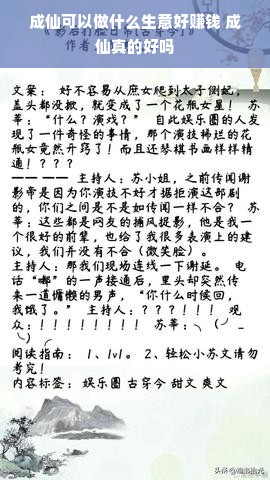 成仙可以做什么生意好赚钱 成
仙真的好吗
文案： 好不容易从庶女爬到太子侧妃，
盖头都没掀，就变成了一个花瓶女星！ 苏
莘：“什么？演戏？” 自此娱乐圈的人发
现了一件奇怪的事情，那个演技稀烂的花
瓶女竟然开窍了！而且还琴棋书画样样精
通！？？？
—— —— 主持人：苏小姐，之前传闻谢
影帝是因为你演技不好才据拒演这部剧
的，你们之间是不是如传闻一样不合？ 苏
莘：这些都是网友的捕风捉影，他是我一
个很好的前辈，也给了我很多表演上的建
议，我们并没有不合（微笑脸）。
主持人：那我们现场连线一下谢延。 电
话“嘟”的一声接通后，里头却突然传
来一道慵懒的男声，“你什么时候回，
我饿了。” 主持人：？？？！！！ 观
众：！！！！！！！！ 苏莘：╮（╯_
╰）╭
阅读指南： 1、1v1。 2、轻松小苏文请勿
考究！
内容标签： 娱乐圈 古穿今 甜文 爽文